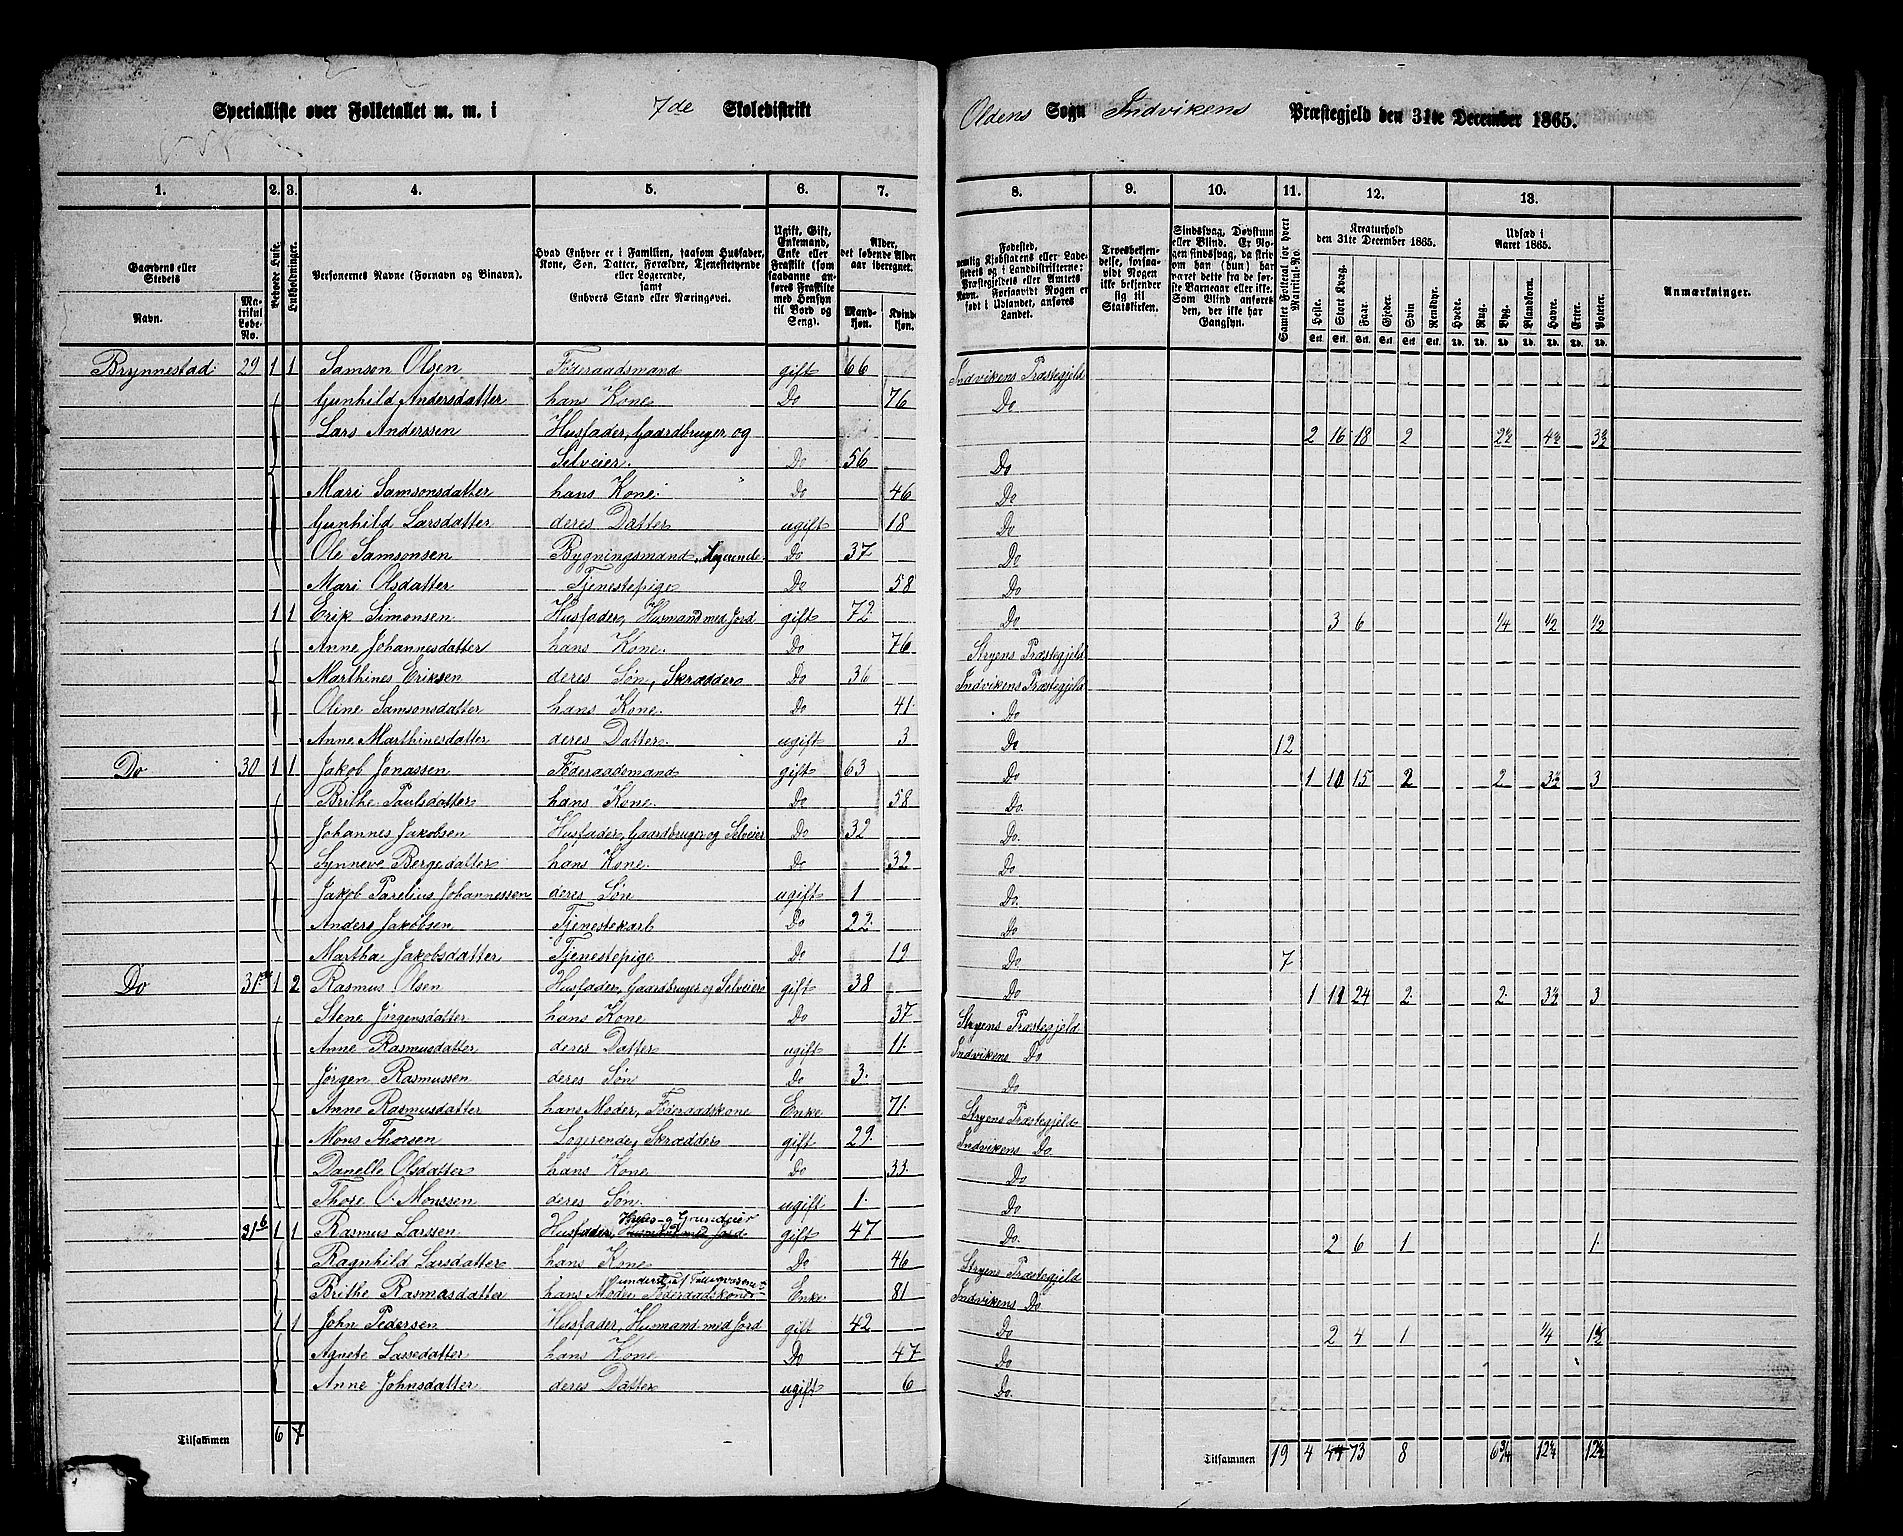 Specialliste over Folketallet m. m. i 7de Skoledistrikt Oldens Sogn Indvikens Præstegjeld den 31te December 1865.
1. 2. 3. 4. 5. 6. 7. 8. 9. 10. 11. 12. 13.
Gaardens eller Stedets Navn. Matrikul Løbe-No. Beboede Huse. Husholdninger. Personernes Navne (Fornavn og Binavn). Hvad Enhver er i Familien, saasom Husfader, Kone, Søn, Datter, Forældre, Tjenestetyende eller Logerende, samt Enhvers Stand eller Næringsvei. Ugift, Gift, Enkemand, Enke eller Fraskilt (som saadanne anføres Fraskilte med Hensyn til Bord og Seng). Alder, det løbende Alders-aar iberegnet. Mandkjøn. Kvindekjøn.
Kreaturhold den 31te December 1865. Udsæd i Aaret 1865. Anmærkninger.
Heste. Stort Kvæg. Faar. Gjeder. Svin. Rensdyr. Hvede. Rug. Byg. Blandkorn. Havre. Erter. Poteter.
Brynnestad 29 1 1 Samson Olsen Føderaadsmand gift 66 Indvikens Præstegjeld
Gunhild Andersdatter hans Kone Do 76 Do
Lars Anderssen Husfader, Gaardbruger og 2 16 18 2 2½ 4½ 3½
Selveier. Do 56 Do
Mari Samsonsdatter hans Kone. Do 46 Do
Gunhild Larsdatter deres Datter ugift 18 Do
Ole Samsonsen Bygningsmand, Do 37 Do
Mari Olsdatter Tjenestepige Do 58 Do
1 1 Erik Simonsen Husfader, Husmand med Jord gift 72 Do 3 6 ¼ ½ ½
Anne Johannesdatter hans Kone. Do 76 Stryens Præstegjeld
Marthines Eriksen deres Søn, Skrædder Do 36 Indvikens Præstegjeld
Oline Samsonsdatter hans Kone. Do 41 Do
Anne Marthinesdatter deres Datter. ugift 3 Do 12
Do 30 1 1 Jakob Jonassen Føderaadsmand gift 63 Do 1 10 15 2 2 3½ 3
Brithe Paulsdatter hans Kone. Do 58 Do.
Johannes Jakobsen Husfader, Gaardbruger og Selveier Do 32 Do.
Synneve Bergedatter hans Kone. Do 32 Do
Jakob Parelius Johannessen deres Søn ugift 1 Do
Anders Jakobsen Tjenestekarl Do 22 Do
Martha Jakobsdatter Tjenestepige Do 19 Do 7
Do 31a 1 2 Rasmus Olsen Husfader, Gaardbruger og Selveier gift 38 Do 1 11 24 2 2 3½ 3
Stene Jørgensdatter hans Kone Do 37 Stryens Præstegjeld
Anne Rasmusdatter deres Datter ugift 11 Indvikens Do
Jørgen Rasmussen deres Søn Do 3 Do
Anne Rasmusdatter hans Moder, Føderaadskone Enke 71 Stryens Præstegjeld
Mons Thorsen Logerende, Skrædder gift 29 Indvikens Do
Danelle Olsdatter hans Kone Do 33 Do
Thore O. Monssen deres Søn. ugift 1 Do
31b 1 1 Rasmus Larssen Husfader, Huus- og Grundeier Husmand med Jord gift 47 Do. 2 6 1 1
Ragnhild Larsdatter hans Kone Do 46 Stryens Præstegjeld
Brithe Rasmusdatter hans Moder, Føderaadskone underst. af Fattigvæsenet Enke 81 Indvikens Do
2 1 John Pedersen Husfader, Husmand med Jord gift 42 Do 2 4 1 ¼ 1½
Agnete Lassedatter hans Kone Do 47 Do
Anne Johnsdatter deres Datter ugift 6 Do
Tilsammen 6 7 Tilsammen 19 4 44 73 8 6¾ 12¼ 12½